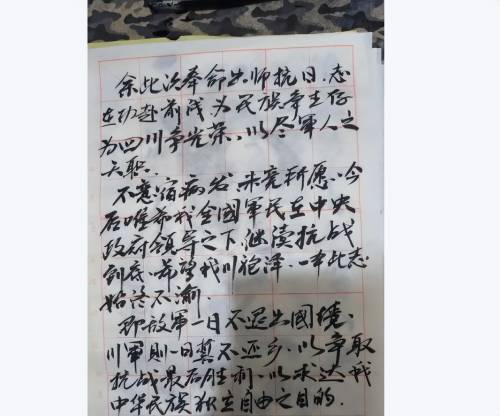 余此次奉命出师抗日、志
在功赴前线为民族争生存
为四川争光荣、以尽军人之
天职、
不意宿病发、未竟所愿、今
后唯希我全國军民在中央
政府领导之下、继续抗战
到底、希望我川袍泽、一本此志
始终不渝、
即敌軍一日不退出國境、
川军則一日誓不还乡、以争取
抗战最后胜利、以求达我
中华民族独立自由之目的、